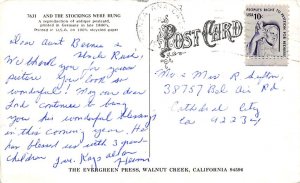 7631 AND THE STOCKINGS WERE HUNG
A reproduction of antique postcard,
printed in Germany in late 1800's.
Printed in U.S.A. on 100% recycled paper
POST CARD
10c
Dear Aunt Bernice &
Uncle Russ,
We thank you for your
picture you look so
wonderful! May our dear
Lord continue to bring
you his wonderful blessings
in this coming year. He
has blessed us with 3 grand
children
Mr & Mrs R
38757 Bel Air Rd.
Cathedral City
Ca 92234
THE EVERGREEN PRESS, WALNUT CREEK, CALIFORNIA 94596